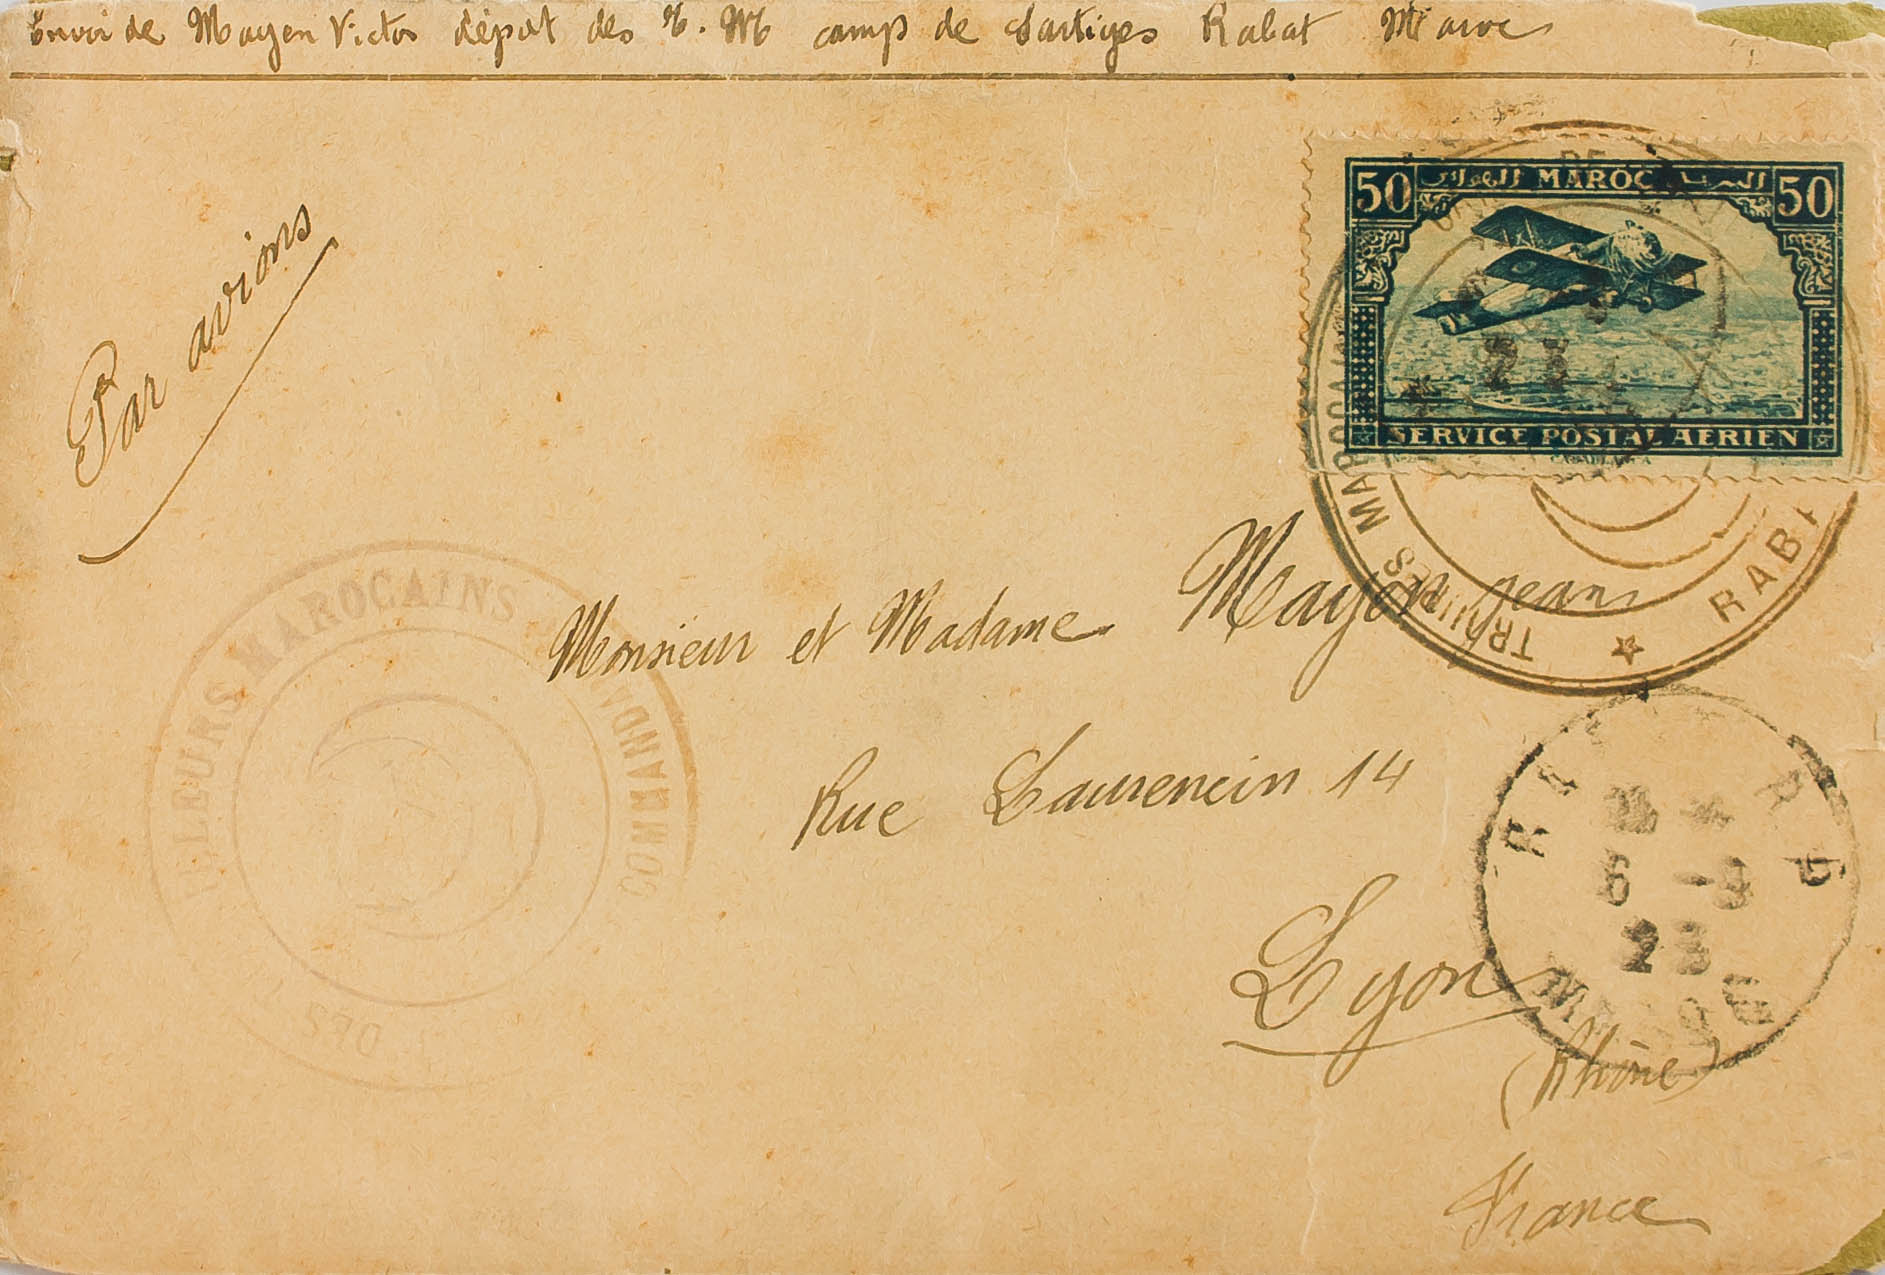 Envoi de Mayen Victor dépot des T. M camp de Sartiges Rabat Maroc
Par avions
50 MAROC 50
SERVICE POSTAL AERIEN
TROUPES MAROCAINES ★ RABAT
Monsieur et Madame Mayen jean
Rue Laurencin 14
Lyon
(Rhône)
France
TIRAILLEURS MAROCAINS
COMMANDANT
DES
RABAT R P
6 - 3
23
MAROC